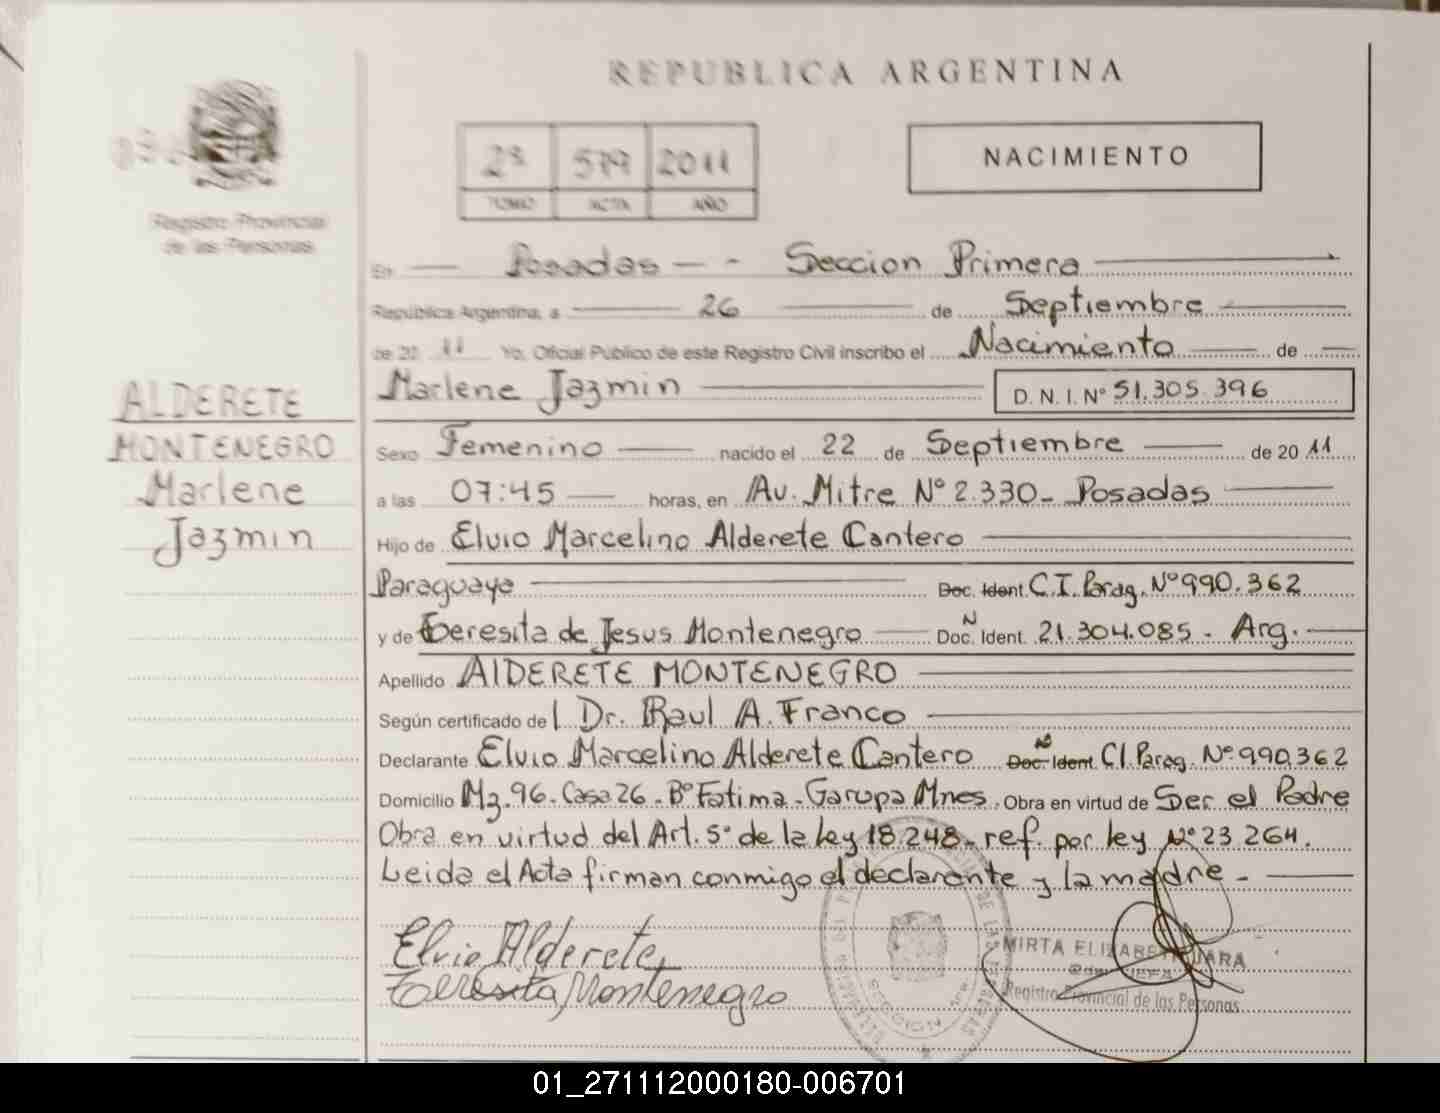 REPUBLICA ARGENTINA
Registro Provincial
de las Personas
2ª 579 2011
TOMO ACTA AÑO
NACIMIENTO
En Posadas - - Seccion Primera
República Argentina, a 26 de Septiembre
de 20 11 Yo, Oficial Público de este Registro Civil inscribo el Nacimiento de
Marlene Jazmin D. N. I. Nº 51.305.396
ALDERETE
MONTENEGRO
Marlene
Jazmin
Sexo Femenino nacido el 22 de Septiembre de 20 11
a las 07:45 horas, en Av. Mitre Nº 2.330- Posadas
Hijo de Elvio Marcelino Alderete Cantero
Paraguaya Doc. Ident. C.I. Parag. Nº 990.362
y de Teresita de Jesus Montenegro Doc. N Ident. 21.304.085 - Arg.
Apellido AlDERETE MONTENEGRO
Según certificado de l Dr. Raul A. Franco
Declarante Elvio Marcelino Alderete Cantero Doc. N Ident. CI. Parag. Nº 990.362
Domicilio Mz. 96. Casa 26. Bº Fatima - Garupa Mnes. Obra en virtud de Ser el Padre
Obra en virtud del Art. 5º de la ley 18.248- ref. por ley Nº 23.264.
Leida el Acta firman conmigo el declarante y la madre -
Elvio Alderete
Teresita Montenegro
MIRTA ELIZABETH JARA
JEFA
Registro Provincial de las Personas
01_271112000180-006701